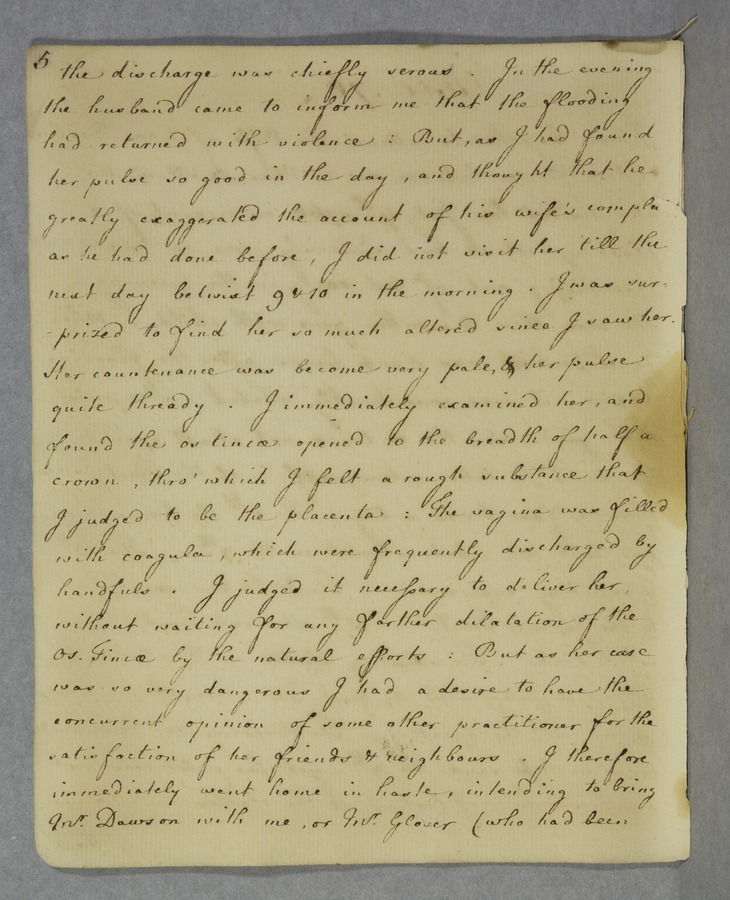 5
the discharge was chiefly serous . In the evening
the husband came to inform me that the flooding
had returned with violence : But, as I had found
her pulse so good in the day , and thought that he
greatly exaggerated the account of his wife's complai
as he had done before, I did not visit her till the
next day betwixt 9 & 10 in the morning . I was sur-
-prized to find her so much altered since I saw her.
Her countenance was become very pale, & her pulse
quite thready . I immediately examined her, and
found the os tincæ opened to the breadth of half a
crown , thro' which I felt a rough substance that
I judged to be the placenta : The vagina was filled
with coagula , which were frequently discharged by
handfuls . I judged it necessary to deliver her
without waiting for any farther dilatation of the
Os. Tincæ by the natural efforts : But as her case
was so very dangerous I had a desire to have the
concurrent opinion of some other practitioner for the
satisfaction of her friends & neighbours . I therefore
immediately went home in haste, intending to bring
Mr. Dawson with me , or Mr. Glover (who had been